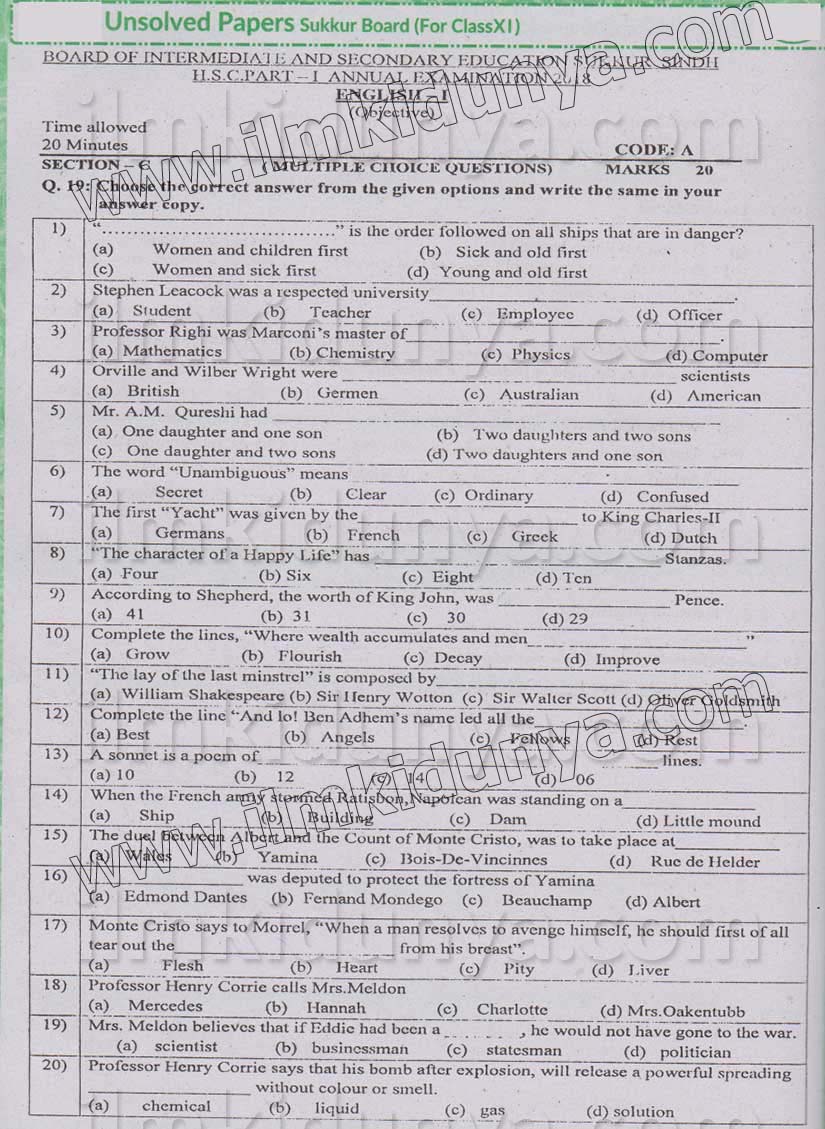 Unsolved Papers Sukkur Board (For ClassXI)
BOARD OF INTERMEDIATE AND SECONDARY EDUCATION SUKKUR SINDH
H.S.C.PART – I ANNUAL EXAMINATION 2018
ENGLISH – I
(Objective)
Time allowed
20 Minutes
CODE: A
SECTION – C (MULTIPLE CHOICE QUESTIONS) MARKS 20
Q. 19: Choose the correct answer from the given options and write the same in your
answer copy.
1) "...................................." is the order followed on all ships that are in danger?
(a) Women and children first (b) Sick and old first
(c) Women and sick first (d) Young and old first
2) Stephen Leacock was a respected university______________.
(a) Student (b) Teacher (c) Employee (d) Officer
3) Professor Righi was Marconi's master of______________.
(a) Mathematics (b) Chemistry (c) Physics (d) Computer
4) Orville and Wilber Wright were ______________ scientists
(a) British (b) Germen (c) Australian (d) American
5) Mr. A.M. Qureshi had ______________
(a) One daughter and one son (b) Two daughters and two sons
(c) One daughter and two sons (d) Two daughters and one son
6) The word "Unambiguous" means ______________
(a) Secret (b) Clear (c) Ordinary (d) Confused
7) The first "Yacht" was given by the ______________ to King Charles-II
(a) Germans (b) French (c) Greek (d) Dutch
8) "The character of a Happy Life" has ______________ Stanzas.
(a) Four (b) Six (c) Eight (d) Ten
9) According to Shepherd, the worth of King John, was ______________ Pence.
(a) 41 (b) 31 (c) 30 (d) 29
10) Complete the lines, "Where wealth accumulates and men______________"
(a) Grow (b) Flourish (c) Decay (d) Improve
11) "The lay of the last minstrel" is composed by______________
(a) William Shakespeare (b) Sir Henry Wotton (c) Sir Walter Scott (d) Oliver Goldsmith
12) Complete the line "And lo! Ben Adhem's name led all the______________.
(a) Best (b) Angels (c) Fellows (d) Rest
13) A sonnet is a poem of______________ lines.
(a) 10 (b) 12 (c) 14 (d) 06
14) When the French army stormed Ratisbon,Napolean was standing on a______________
(a) Ship (b) Building (c) Dam (d) Little mound
15) The duel between Albert and the Count of Monte Cristo, was to take place at______________
(a) Wales (b) Yamina (c) Bois-De-Vincinnes (d) Rue de Helder
16) ______________ was deputed to protect the fortress of Yamina
(a) Edmond Dantes (b) Fernand Mondego (c) Beauchamp (d) Albert
17) Monte Cristo says to Morrel, "When a man resolves to avenge himself, he should first of all
tear out the______________ from his breast".
(a) Flesh (b) Heart (c) Pity (d) Liver
18) Professor Henry Corrie calls Mrs.Meldon
(a) Mercedes (b) Hannah (c) Charlotte (d) Mrs.Oakentubb
19) Mrs. Meldon believes that if Eddie had been a ________, he would not have gone to the war.
(a) scientist (b) businessman (c) statesman (d) politician
20) Professor Henry Corrie says that his bomb after explosion, will release a powerful spreading
______________ without colour or smell.
(a) chemical (b) liquid (c) gas (d) solution
www.ilmkidunya.com
www.ilmkidunya.com
ilmkidunya.com
ilmkidunya.com
ilmkidunya.com
ilmkidunya.com
ilmkidunya.com
ilmkidunya.com